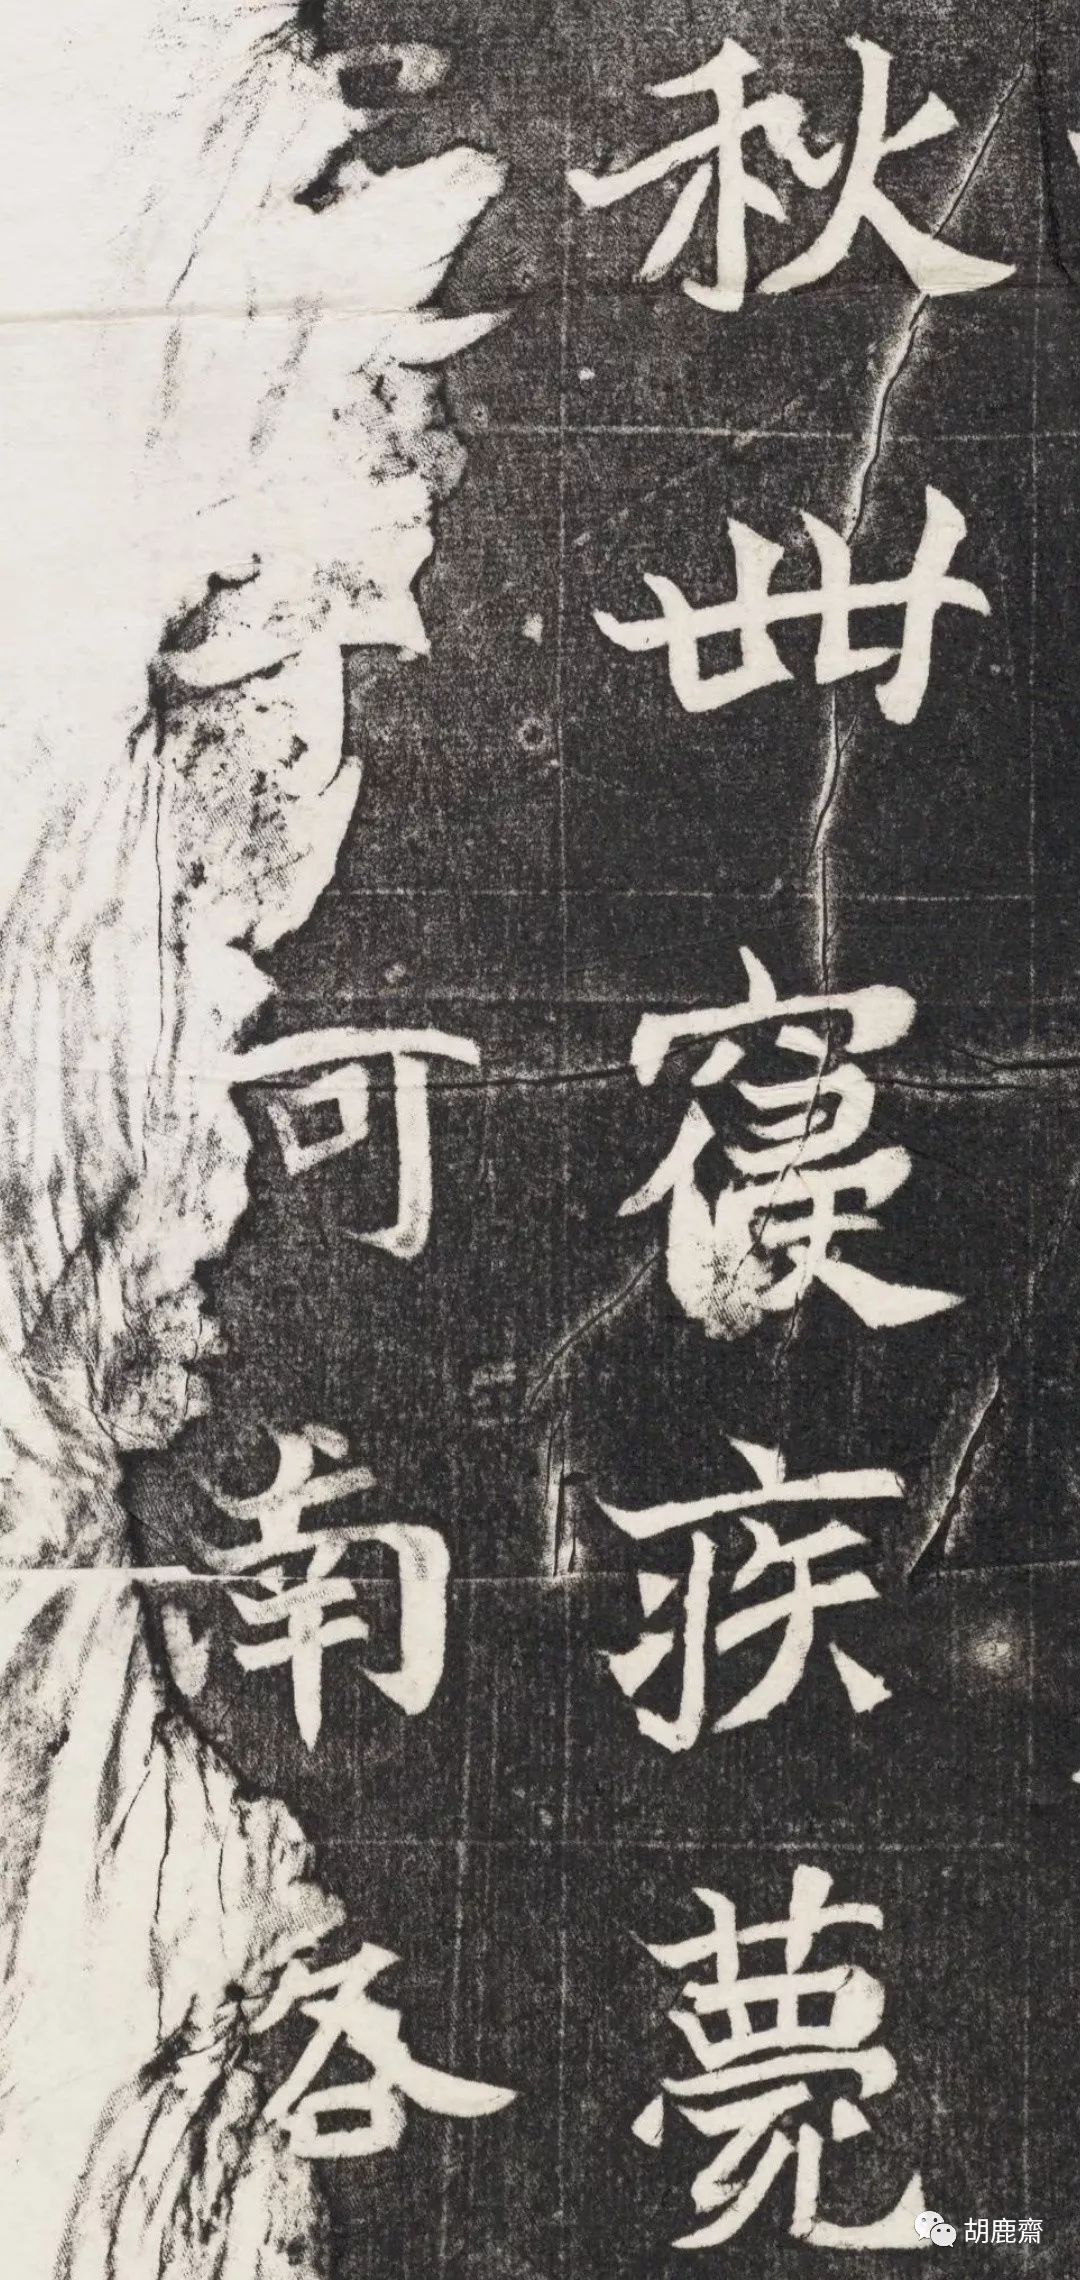 秋卌寑疾薨
河南洛
胡鹿齋